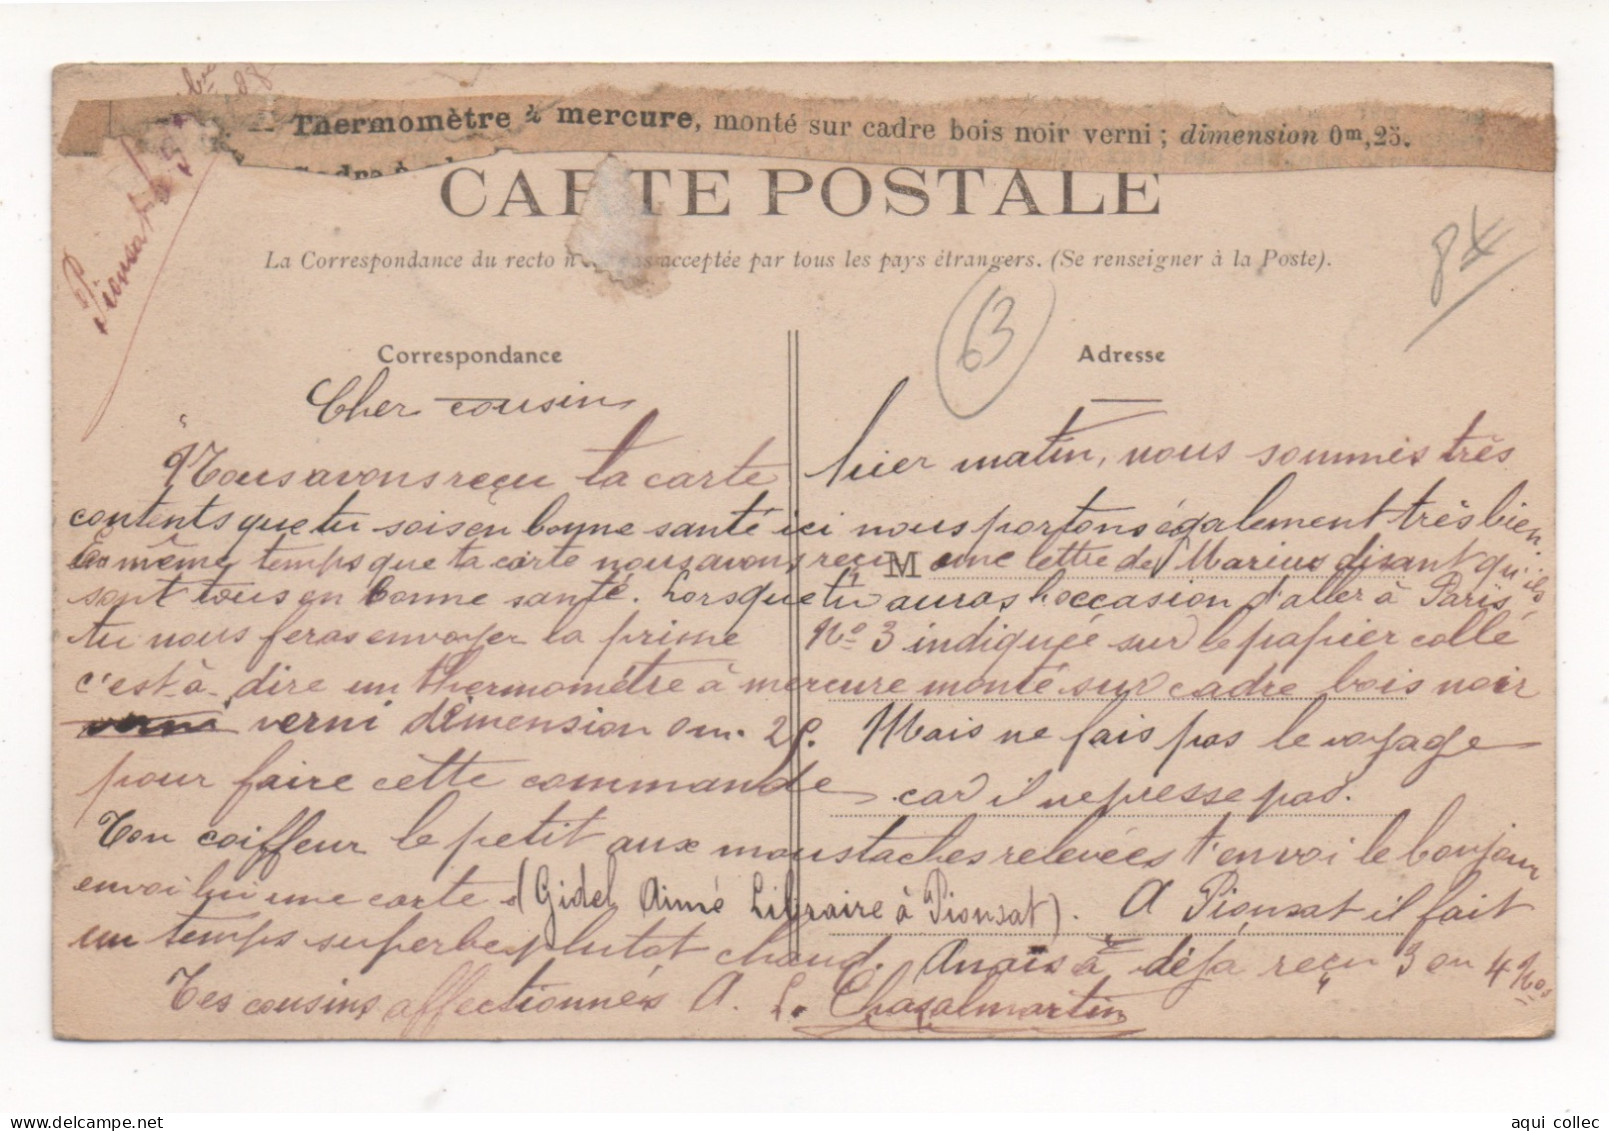 Thermomètre à mercure, monté sur cadre bois noir verni ; dimension 0m,25.
CARTE POSTALE
La Correspondance du recto n' pas acceptée par tous les pays étrangers. (Se renseigner à la Poste).
Pionsat
84
63
Correspondance
Adresse
Cher cousin
Nous avons reçu ta carte hier matin, nous sommes très
contents que tu sois en bonne santé ici nous portons également très bien.
En même temps que ta carte nous avons reçu M une lettre de Marius disant qu'ils
sont tous en bonne santé. Lorsque tu auras l'occasion d'aller à Paris
tu nous feras envoyer la prime No 3 indiquée sur le papier collé
c'est-à-dire un thermomètre à mercure monté sur cadre bois noir
verni verni dimension 0m. 25. Mais ne fais pas le voyage
pour faire cette commande car il ne presse pas.
Ton coiffeur le petit aux moustaches relevées t'envoi le bonjour
envoi lui une carte (Gidel Aimé Libraire à Pionsat). A Pionsat il fait
un temps superbe plutot chaud. Anaïs a déjà reçu 3 ou 4 Nos
Tes cousins affectionnés A. L. Chazalmartin
aqui collec